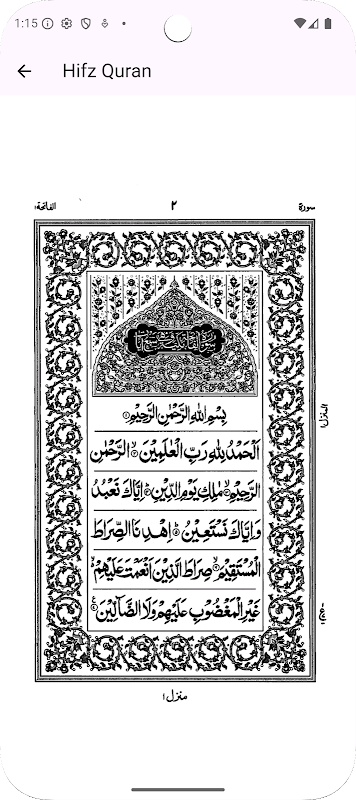 1:15
Hifz Quran
سورة ٢ الفاتحة ١
بِسْمِ اللهِ الرَّحْمٰنِ الرَّحِيْمِ
اَلْحَمْدُ لِلّٰهِ رَبِّ الْعٰلَمِيْنَ الرَّحْمٰنِ
الرَّحِيْمِ مٰلِكِ يَوْمِ الدِّيْنِ اِيَّاكَ نَعْبُدُ
وَاِيَّاكَ نَسْتَعِيْنُ اِهْدِنَا الصِّرَاطَ
الْمُسْتَقِيْمَ صِرَاطَ الَّذِيْنَ اَنْعَمْتَ عَلَيْهِمْ
غَيْرِ الْمَغْضُوْبِ عَلَيْهِمْ وَلَا الضَّآلِّيْنَ
منزل ١